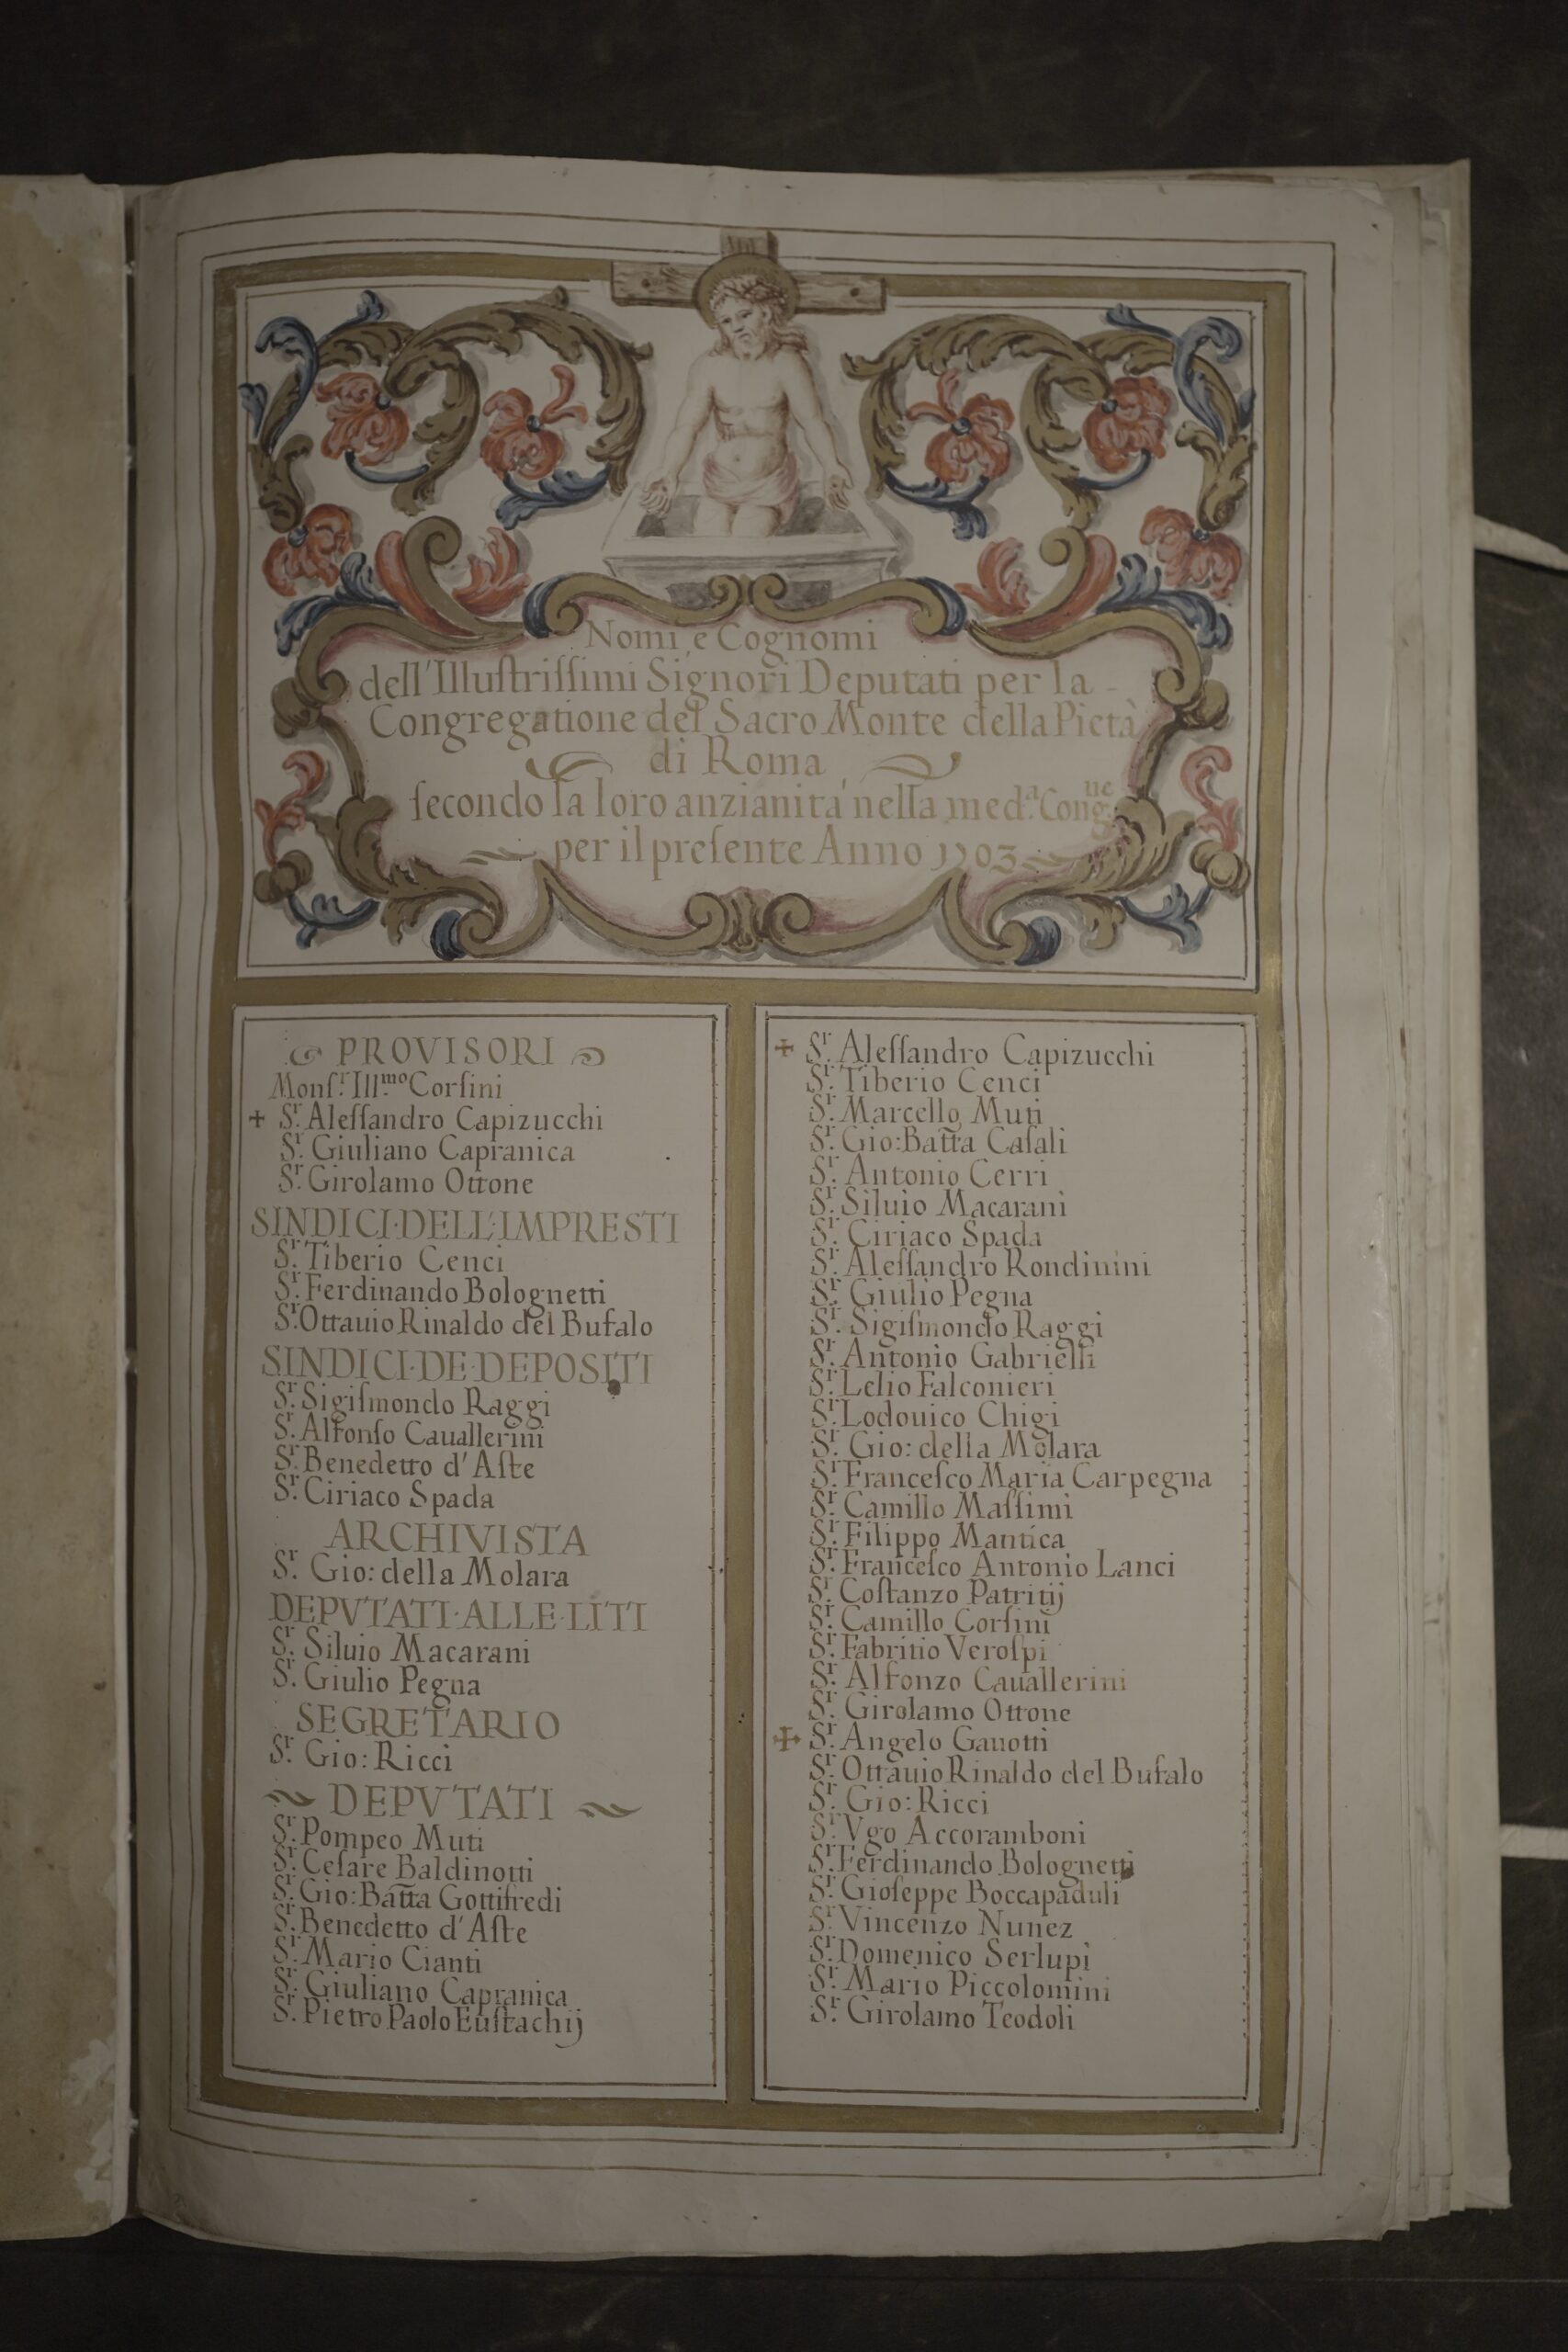 Nomi, e Cognomi
dell'Illuſtriſſimi Signori Deputati per la -
Congregatione del Sacro Monte della Pietà
di Roma
ſecondo la loro anzianità nella med.ª Cong.ne
per il preſente Anno 1703
PROVISORI
Monſ.r Ill.mo Corſini
+ S.r Aleſſandro Capizucchi
S.r Giuliano Capranica
S.r Girolamo Ottone
SINDICI·DELL'·IMPRESTI
S.r Tiberio Cenci
S.r Ferdinando Bolognetti
S.r Ottauio Rinaldo del Bufalo
SINDICI·DE·DEPOSITI
S.r Sigiſmondo Raggi
S.r Alfonſo Cauallerini
S.r Benedetto d'Aſte
S.r Ciriaco Spada
ARCHIVISTA
S.r Gio: della Molara
DEPVTATI·ALLE·LITI
S.r Siluio Macarani
S.r Giulio Pegna
SEGRETARIO
S.r Gio: Ricci
DEPVTATI
S.r Pompeo Muti
S.r Ceſare Baldinotti
S.r Gio: Batt̄a Gottifredi
S.r Benedetto d'Aſte
S.r Mario Cianti
S.r Giuliano Capranica
S.r Pietro Paolo Euſtachij
+ S.r Aleſſandro Capizucchi
S.r Tiberio Cenci
S.r Marcello Muti
S.r Gio: Batt̄a Caſali
S.r Antonio Cerri
S.r Siluio Macarani
S.r Ciriaco Spada
S.r Aleſſandro Rondinini
S.r Giulio Pegna
S.r Sigiſmondo Raggi
S.r Antonio Gabrielli
S.r Lelio Falconieri
S.r Lodouico Chigi
S.r Gio: della Molara
S.r Franceſco Maria Carpegna
S.r Camillo Maſſimi
S.r Filippo Mantica
S.r Franceſco Antonio Lanci
S.r Coſtanzo Patritij
S.r Camillo Corſini
S.r Fabritio Veroſpi
S.r Alfonzo Cauallerini
S.r Girolamo Ottone
+ S.r Angelo Gauotti
S.r Ottauio Rinaldo del Bufalo
S.r Gio: Ricci
S.r Vgo Accoramboni
S.r Ferdinando Bolognetti
S.r Gioſeppe Boccapaduli
S.r Vincenzo Nunez
S.r Domenico Serlupi
S.r Mario Piccolomini
S.r Girolamo Teodoli